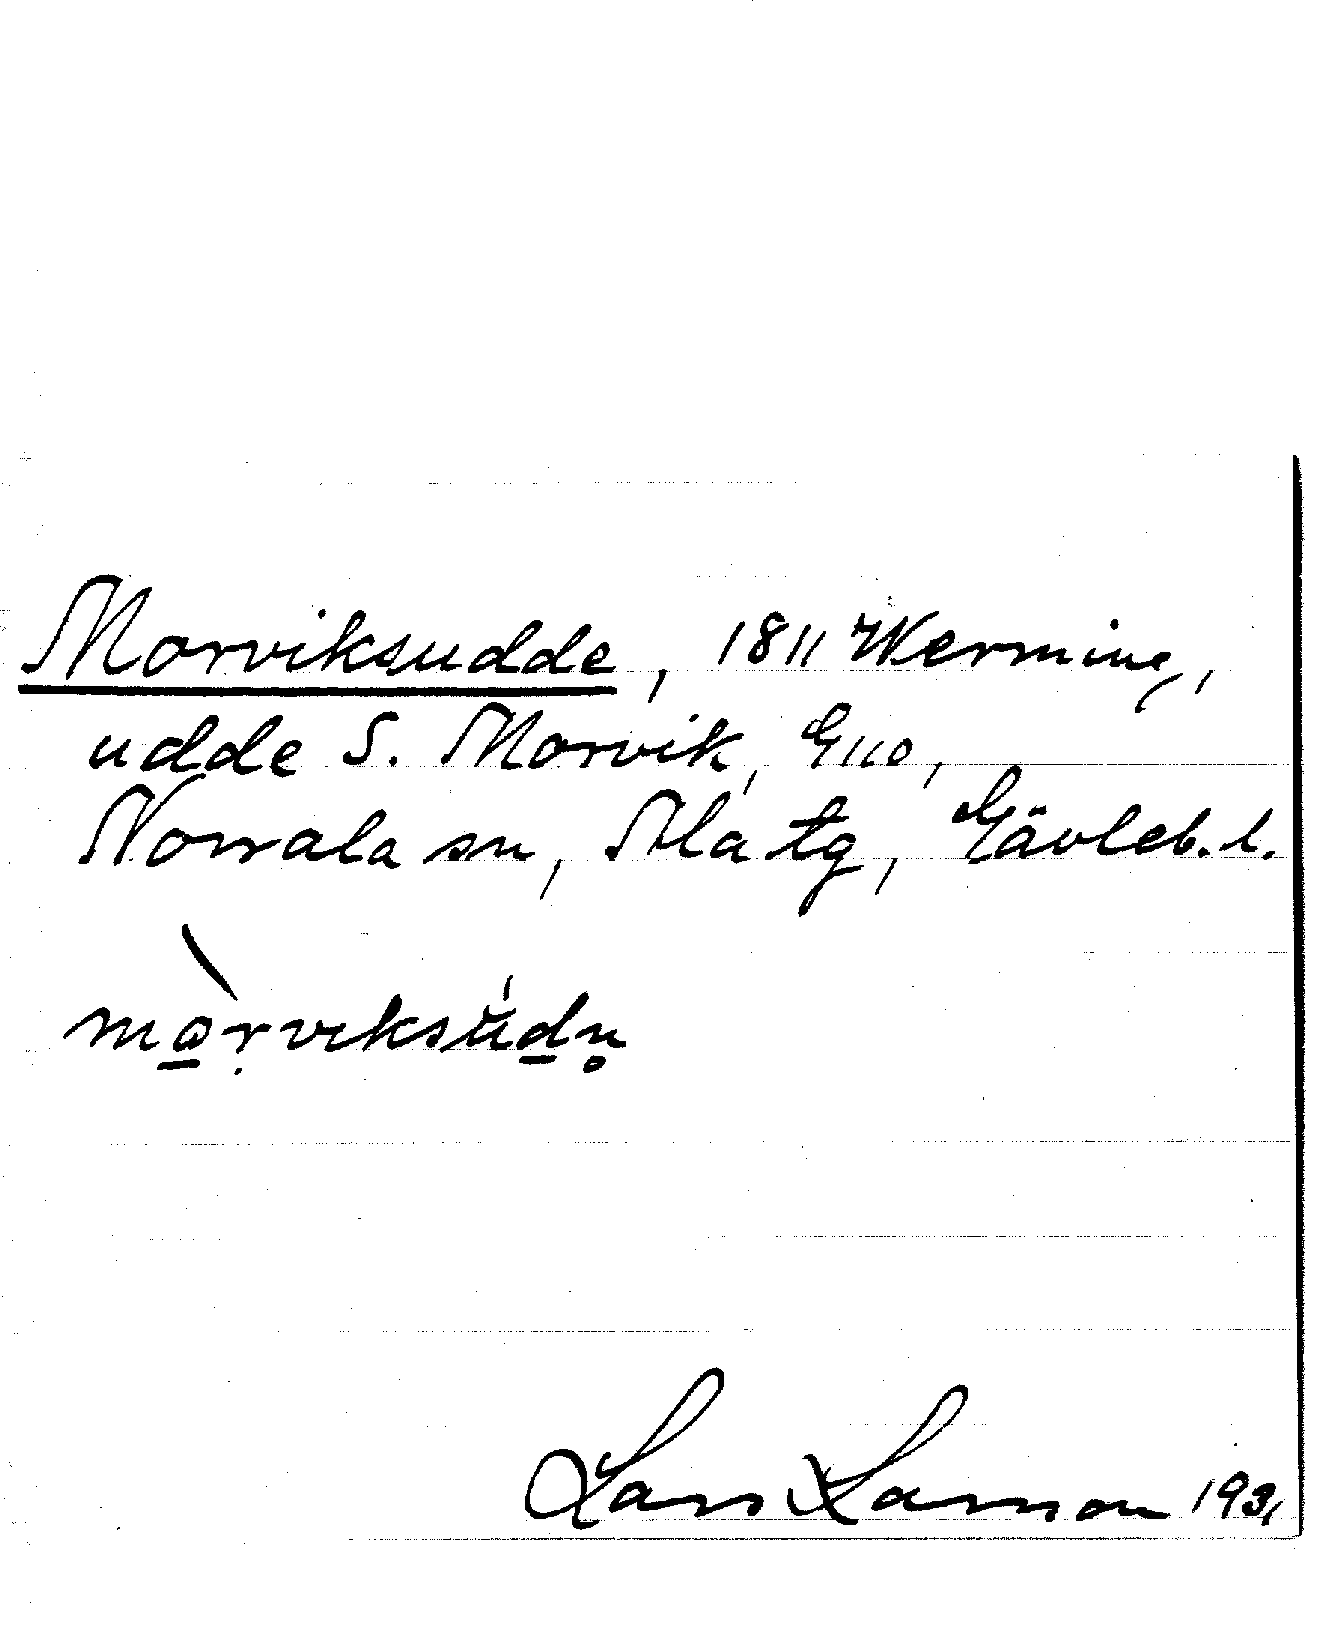 Morviksudde, 1811 Werming,
udde S. Morvik, G110,
Norrala sn, Ala tg, Gävleb. l.
mò̲ṛviksúd̲n̥
Lars Larsson 1931